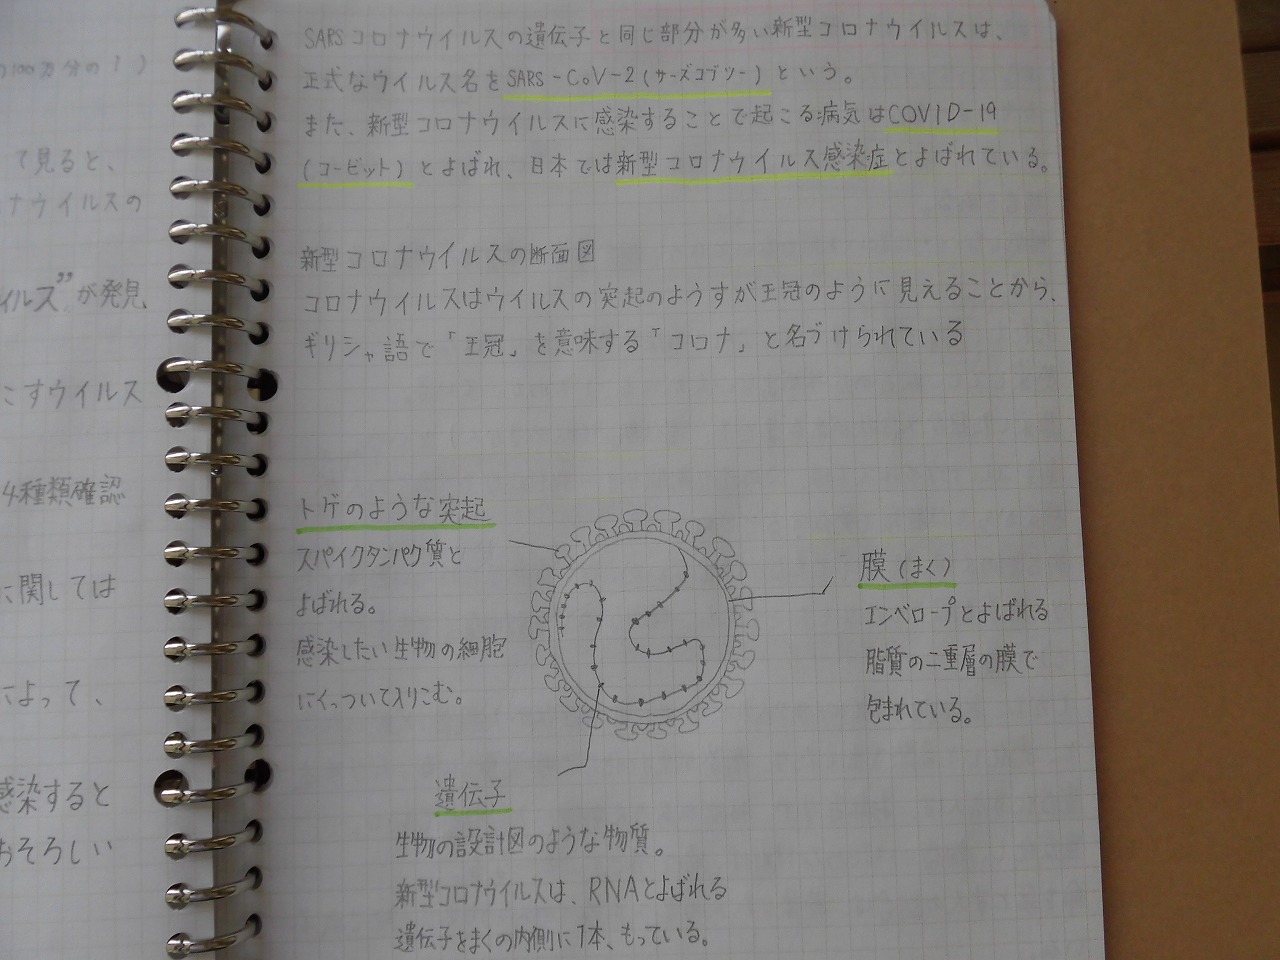 の100万分の1)
て見ると、
ナウイルスの
イルス”が発見
こすウイルス
4種類確認
に関しては
によって、
感染すると
おそろしい
SARSコロナウイルスの遺伝子と同じ部分が多い新型コロナウイルスは、
正式なウイルス名をSARS-CoV-2(サーズコブツー)という。
また、新型コロナウイルスに感染することで起こる病気はCOVID-19
(コービット)とよばれ、日本では新型コロナウイルス感染症とよばれている。
新型コロナウイルスの断面図
コロナウイルスはウイルスの突起のようすが王冠のように見えることから、
ギリシャ語で「王冠」を意味する「コロナ」と名づけられている
トゲのような突起
スパイクタンパク質と
よばれる。
感染したい生物の細胞
にくっついて入りこむ。
膜(まく)
エンベロープとよばれる
脂質の二重層の膜で
包まれている。
遺伝子
生物の設計図のような物質。
新型コロナウイルスは、RNAとよばれる
遺伝子をまくの内側に1本、もっている。